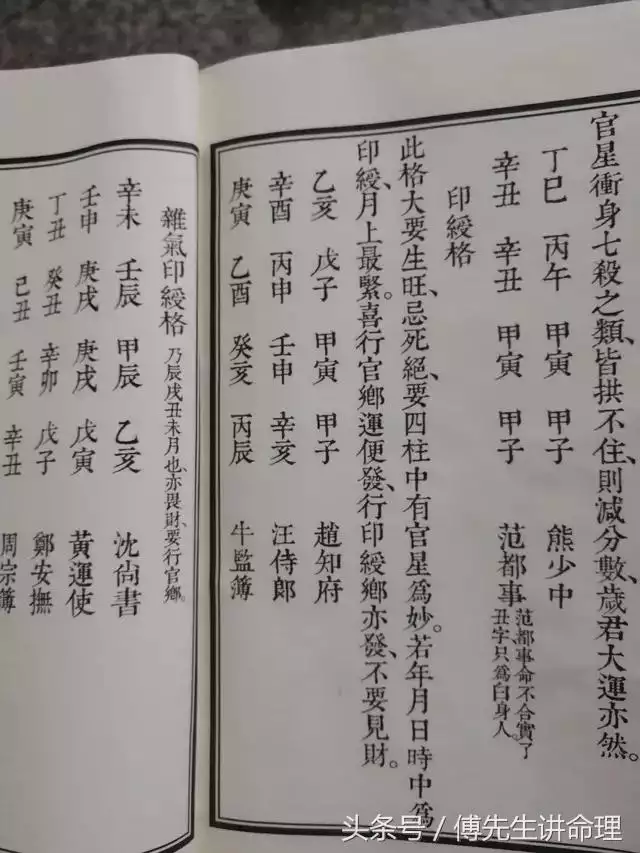 官星衝身七殺之類、皆拱不住、則減分數、歲君大運亦然。
丁巳 丙午 甲寅 甲子 熊少中
辛丑 辛丑 甲寅 甲子 范都事 范都事命不合實了
丑字只為白身人。
印綬格
此格大要生旺、忌死絕、要四柱中有官星為妙。若年月日時中為
印綬、月上最緊。喜行官鄉運便發、行印綬鄉亦發、不要見財。
乙亥 戊子 甲寅 甲子 趙知府
辛酉 丙申 壬申 辛亥 汪侍郎
庚寅 乙酉 癸亥 丙辰 牛監簿
雜氣印綬格 乃辰戌丑未月也、亦畏財、要行官鄉。
辛未 壬辰 甲辰 乙亥 沈尙書
壬申 庚戌 庚戌 戊寅 黃運使
丁丑 癸丑 辛卯 戊子 鄭安撫
庚寅 己丑 壬寅 辛丑 周宗簿
头条号 / 傅先生讲命理